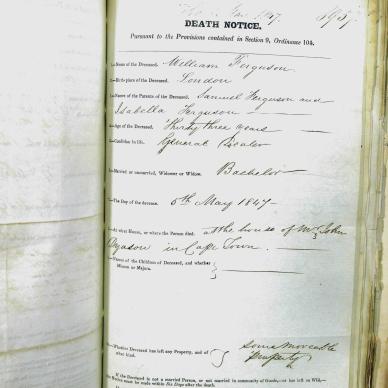 DEATH NOTICE.
Pursuant to the Provisions contained in Section 9, Ordinance 104.
1.—Name of the Deceased. William Ferguson
2.—Birth-place of the Deceased. London
3.—Names of the Parents of the Deceased. Samuel Ferguson and
Isabella Ferguson
4.—Age of the Deceased. Thirty three years
5.—Condition in life. General Dealer
6.—Married or unmarried, Widower or Widow. Bachelor
7.—The Day of the decease. 6th May 1847
8.—At what House, or where the Person died. at the house of Mr John
in Cape Town.
9.—Names of the Children of Deceased, and whether
Minors or Majors.
10.—Whether Deceased has left any Property, and of
what kind. Some Moveable
Property
If the Deceased is not a married Person, or not married in community of Goods, has left on Will,
Notice must be made within Six Days after the death.